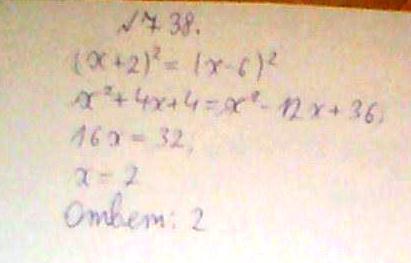 № 738.
(x+2)² = (x-6)²
x²+4x+4 = x² - 12x+36,
16x = 32,
x = 2
Ответ: 2